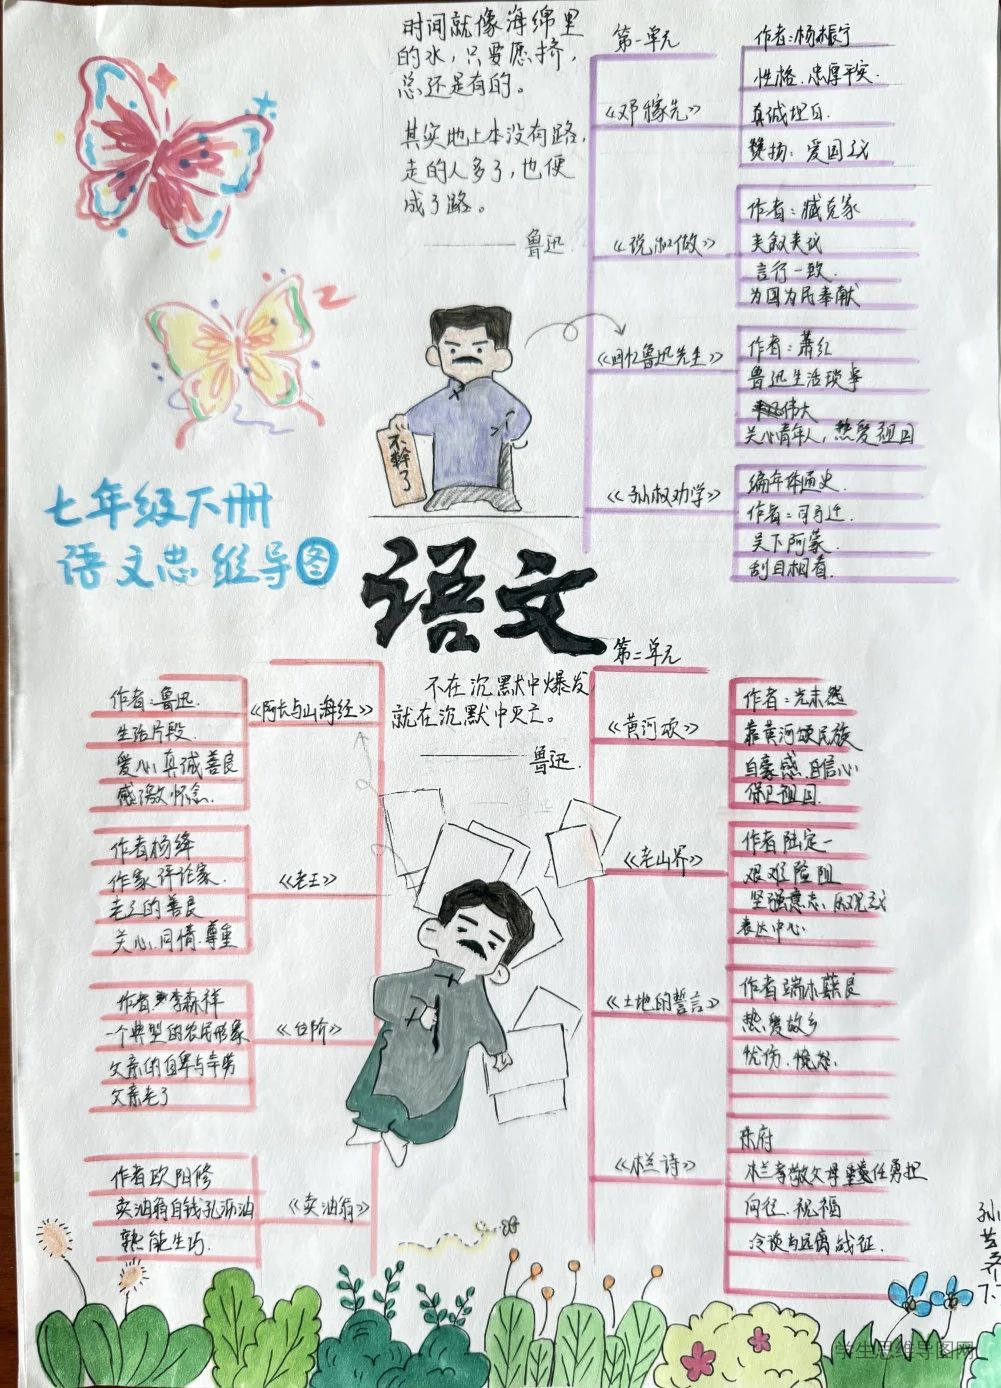 时间就像海绵里
的水，只要愿挤，
总还是有的。
其实地上本没有路，
走的人多了，也便
成了路。
——鲁迅
不幹了
七年级下册
语文思维导图
语文
第一单元
《邓稼先》
作者：杨振宁
性格：忠厚平实
真诚坦白
赞扬：爱国主义
《说和做》
作者：臧克家
夹叙夹议
言行一致
为国为民奉献
《回忆鲁迅先生》
作者：萧红
鲁迅生活琐事
伟大
关心青年人，热爱祖国
《孙权劝学》
编年体通史
作者：司马迁
吴下阿蒙
刮目相看
第二单元
《黄河颂》
作者：光未然
靠黄河颂民族
自豪感、自信心
保卫祖国
《老山界》
作者陆定一
艰难险阻
坚强意志、乐观主义
表达中心
《土地的誓言》
作者端木蕻良
热爱故乡
忧伤、愤怒
《木兰诗》
乐府
木兰孝敬父母 责任勇担
向往、祝福
冷淡与远离战征
不在沉默中爆发，
就在沉默中灭亡。
——鲁迅
《阿长与山海经》
作者：鲁迅
生活片段
爱心真诚善良
感激怀念
《老王》
作者杨绛
作家评论家
老王的善良
关心、同情、尊重
《台阶》
作者李森祥
一个典型的农民形象
父亲的自卑与辛劳
父亲老了
《卖油翁》
作者欧阳修
卖油翁自钱孔沥油
熟能生巧
学生思维导图网